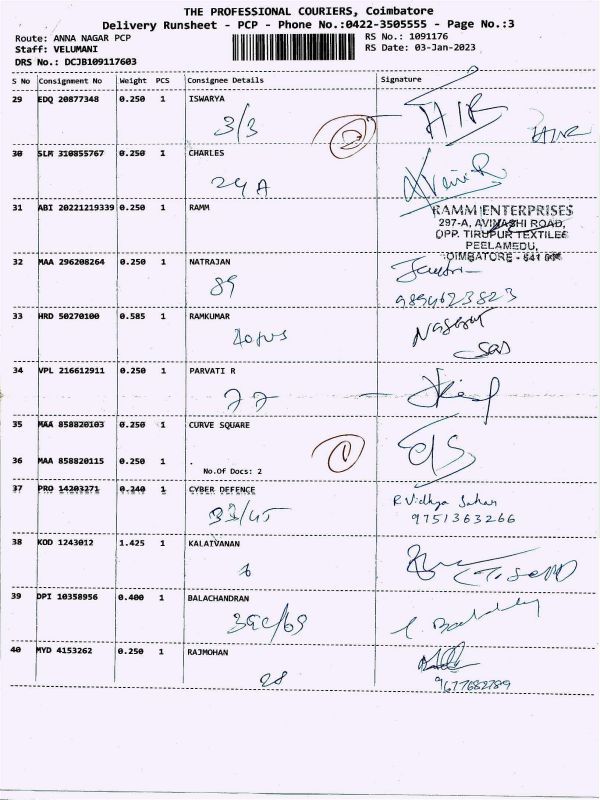 THE PROFESSIONAL COURIERS, Coimbatore
Delivery Runsheet - PCP - Phone No.:0422-3505555 - Page No.:3
Route: ANNA NAGAR PCP
RS No.: 1091176
Staff: VELUMANI
RS Date: 03-Jan-2023
DRS No.: DCJB109117603
S No Consignment No Weight PCS Consignee Details Signature
29 EDQ 20877348 0.250 1 ISWARYA
3/3
30 SLM 310855767 0.250 1 CHARLES
24 A
31 ABI 20221219339 0.250 1 RAMM
RAMM ENTERPRISES
297-A, AVINASHI ROAD,
OPP. TIRUPUR TEXTILES
PEELAMEDU,
COIMBATORE - 641 004
32 MAA 296208264 0.250 1 NATRAJAN
89
9894623823
33 HRD 50270100 0.585 1 RAMKUMAR
34 VPL 216612911 0.250 1 PARVATI R
77
35 MAA 858820103 0.250 1 CURVE SQUARE
36 MAA 858820115 0.250 1 .
No.Of Docs: 2
37 PRO 14203271 0.340 1 CYBER DEFENCE
33/45
R Vidhya Sahar
9751363266
38 KOD 1243012 1.425 1 KALAIVANAN
39 DPI 10358956 0.400 1 BALACHANDRAN
39C/69
40 MYD 4153262 0.250 1 RAJMOHAN
28
9677682789